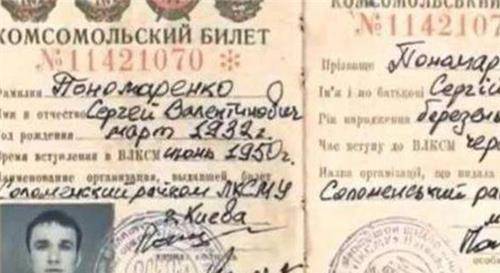 КОМСОМОЛЬСКИЙ БИЛЕТ
№ 11421070 *
Фамилия Пономаренко
Имя и отчество Сергей Валентинович
Год рождения март 1932 г.
Время вступления в ВЛКСМ июнь 1950 г.
Наименование организации, выдавшей билет
Соломенский райком ЛКСМУ
г. Киева
КОМСОМОЛЬСЬКИЙ
№ 1142107
Прізвище Понома
Ім'я і по батькові Сергій
Рік народження березень
Час вступу до ВЛКСМ чер
Назва організації, що видала
Соломенський ра